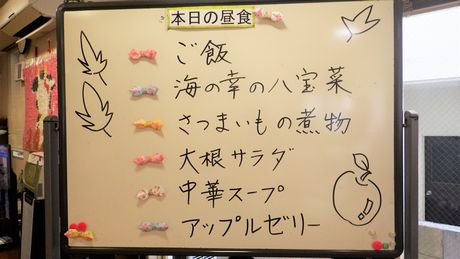 本日の昼食
ご飯
海の幸の八宝菜
さつまいもの煮物
大根サラダ
中華スープ
アップルゼリー